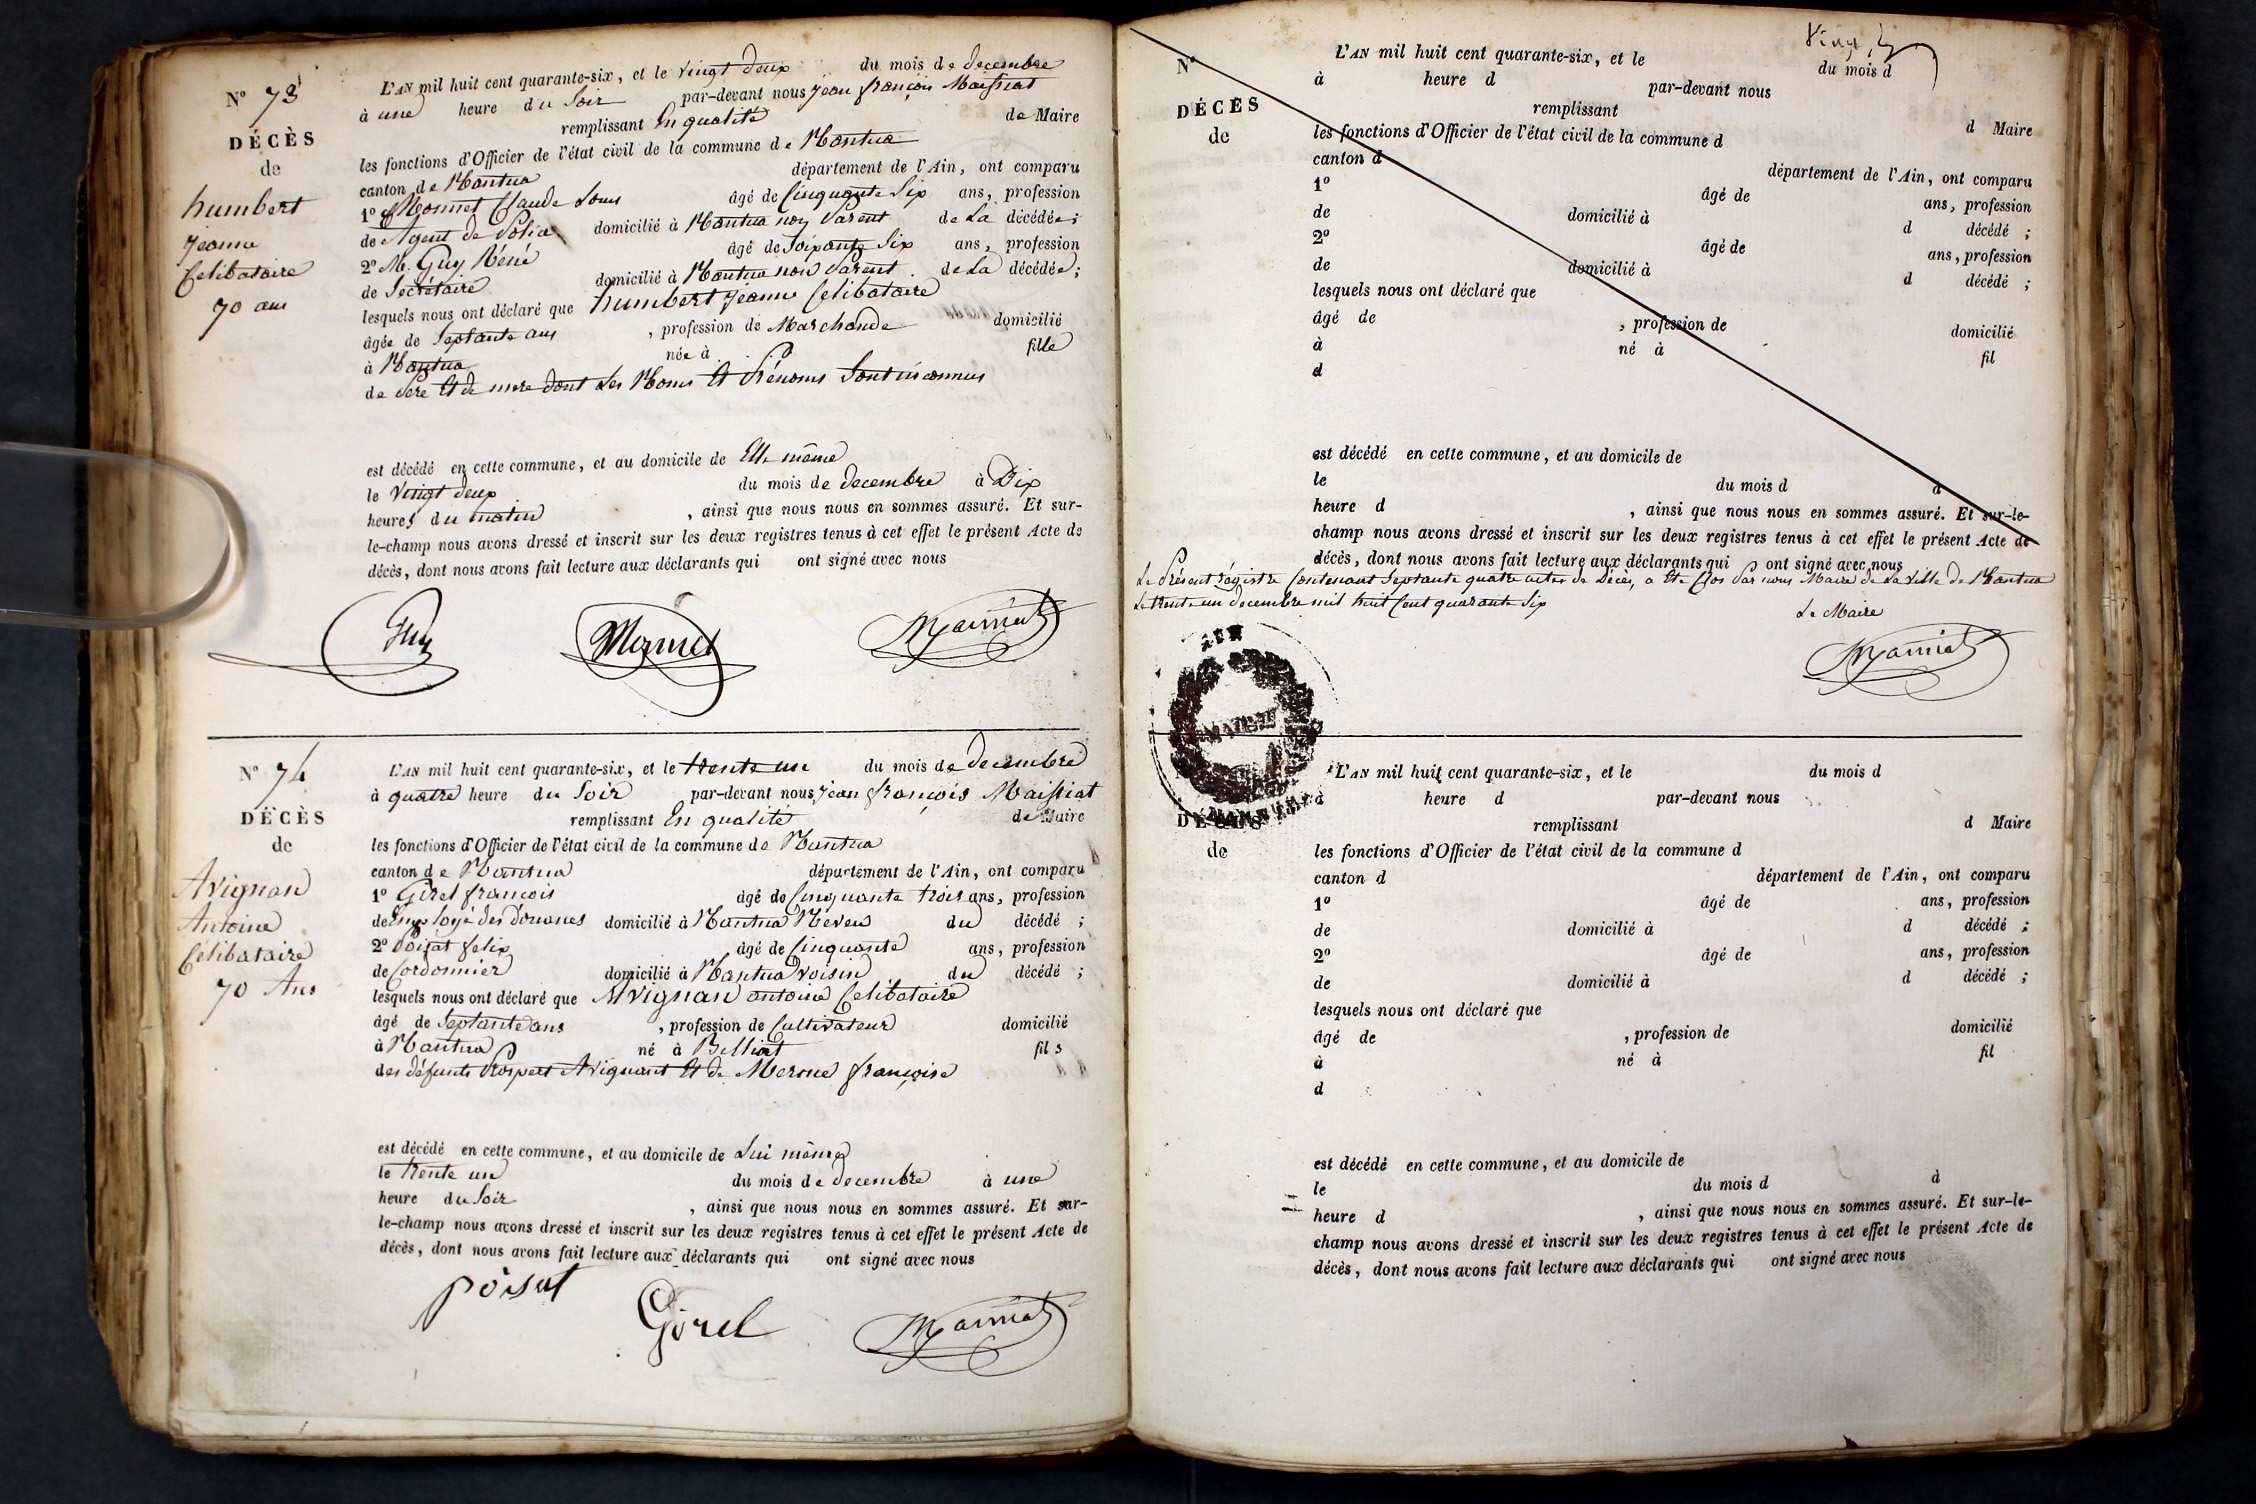 N° 73
DÉCÈS
de
humbert
jeanne
Celibataire
70 ans
L'AN mil huit cent quarante-six, et le vingt deux du mois de decembre
à une heure du soir par-devant nous jean françois Maissiat
remplissant En qualité de Maire
les fonctions d'Officier de l'état civil de la commune de Nantua
canton de Nantua département de l'Ain, ont comparu
1° Monnet Claude Louis âgé de Cinquante Six ans, profession
de Agent de Police domicilié à Nantua non Parent de La décédée;
2° M. Guy Réné âgé de Soixante Six ans, profession
de Secrétaire domicilié à Nantua non Parent de La décédée;
lesquels nous ont déclaré que humbert jeanne Celibataire
âgée de Septante ans, profession de Marchande domicilié
à Nantua née à fille
de Père Et de mere dont Les Noms Et Prénoms Sont inconnus
est décédé en cette commune, et au domicile de Elle même
le Vingt deux du mois de decembre à Dix
heures du matin, ainsi que nous nous en sommes assuré. Et sur-
le-champ nous avons dressé et inscrit sur les deux registres tenus à cet effet le présent Acte de
décès, dont nous avons fait lecture aux déclarants qui ont signé avec nous
Guy Monnet Maissiat
N° 74
DÉCÈS
de
Avignan
Antoine
Célibataire
70 Ans
L'AN mil huit cent quarante-six, et le trente un du mois de decembre
à quatre heure du Soir par-devant nous jean françois Maissiat
remplissant En qualité de Maire
les fonctions d'Officier de l'état civil de la commune de Nantua
canton de Nantua département de l'Ain, ont comparu
1° Girel françois âgé de Cinquante trois ans, profession
de Employé des douanes domicilié à Nantua Neveu du décédé;
2° Poisat felix âgé de Cinquante ans, profession
de Cordonnier domicilié à Nantua Voisin du décédé;
lesquels nous ont déclaré que Avignan antoine Celibataire
âgé de Septante ans, profession de Cultivateur domicilié
à Nantua né à Belliat fils
des défunts Prospert Avignant Et de Mermet françoise
est décédé en cette commune, et au domicile de Lui même
le trente un du mois de decembre à une
heure du Soir, ainsi que nous nous en sommes assuré. Et sur-
le-champ nous avons dressé et inscrit sur les deux registres tenus à cet effet le présent Acte de
décès, dont nous avons fait lecture aux déclarants qui ont signé avec nous
poisat Girel Maissiat
N°
DÉCÈS
de
L'AN mil huit cent quarante-six, et le du mois d
à heure d par-devant nous
remplissant d Maire
les fonctions d'Officier de l'état civil de la commune d
canton d département de l'Ain, ont comparu
1° âgé de ans, profession
de domicilié à d décédé;
2° âgé de ans, profession
de domicilié à d décédé;
lesquels nous ont déclaré que
âgé de, profession de domicilié
à né à fil
d
est décédé en cette commune, et au domicile de
le du mois d à
heure d, ainsi que nous nous en sommes assuré. Et sur-le-
champ nous avons dressé et inscrit sur les deux registres tenus à cet effet le présent Acte de
décès, dont nous avons fait lecture aux déclarants qui ont signé avec nous
Le Présent régistre Contenant Septante quatre actes de Décès, a Eté Clos Par nous Maire de La Ville de Nantua
Le trente un decembre mil huit Cent quarante Six
Le Maire
Maissiat
AIN
MAIRIE
DE NANTUA
DÉCÈS
de
L'AN mil huit cent quarante-six, et le du mois d
à heure d par-devant nous
remplissant d Maire
les fonctions d'Officier de l'état civil de la commune d
canton d département de l'Ain, ont comparu
1° âgé de ans, profession
de domicilié à d décédé;
2° âgé de ans, profession
de domicilié à d décédé;
lesquels nous ont déclaré que
âgé de, profession de domicilié
à né à fil
d
est décédé en cette commune, et au domicile de
le du mois d à
heure d, ainsi que nous nous en sommes assuré. Et sur-le-
champ nous avons dressé et inscrit sur les deux registres tenus à cet effet le présent Acte de
décès, dont nous avons fait lecture aux déclarants qui ont signé avec nous